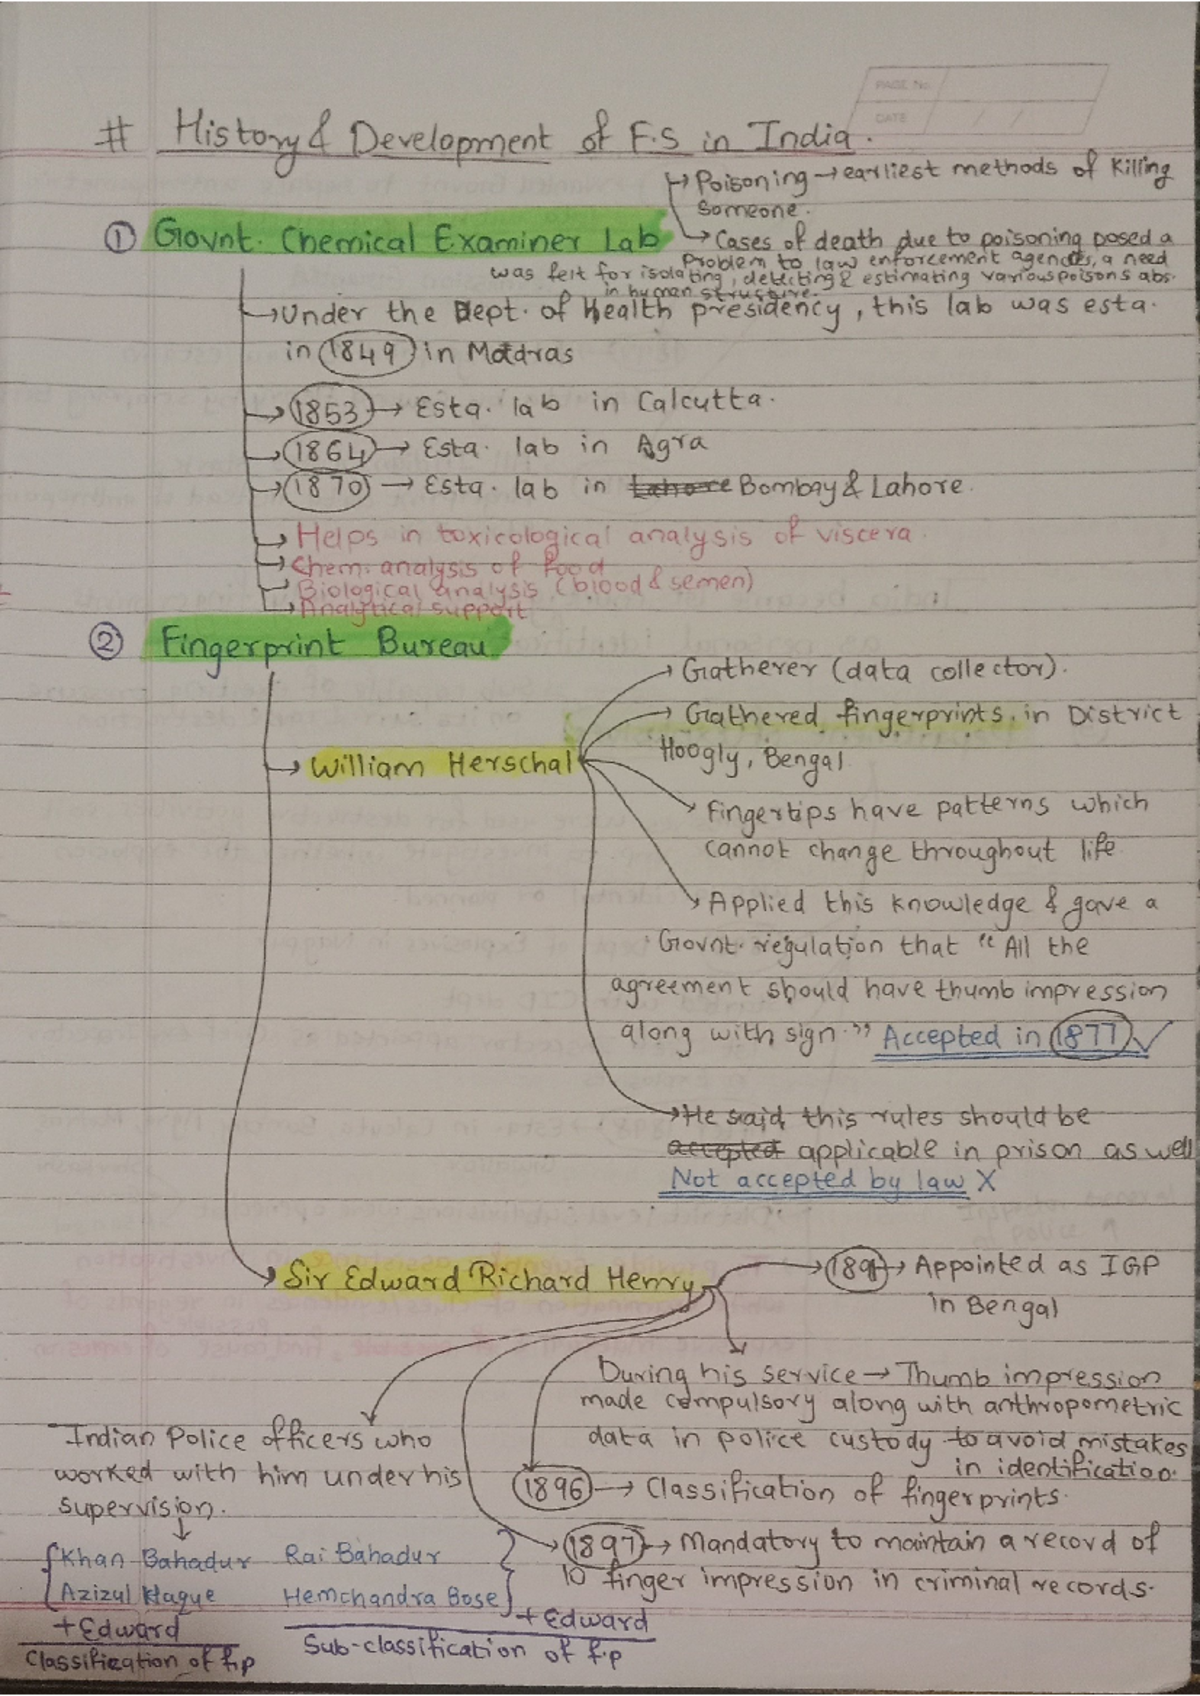 PAGE No.
DATE / /
# History & Development of F.S in India.
→ Poisoning → earliest methods of Killing
someone.
① Govnt. Chemical Examiner Lab → Cases of death due to poisoning posed a
Problem to law enforcement agencies, a need
was felt for isolating, detecting & estimating various poisons abs.
in human structure.
→ Under the Dept. of Health presidency, this lab was esta.
in 1849 in Madras
→ 1853 → Esta. lab in Calcutta.
→ 1864 → Esta. lab in Agra
→ 1870 → Esta. lab in Lahore Bombay & Lahore.
→ Helps in toxicological analysis of viscera.
→ Chem. analysis of food
→ Biological analysis (blood & semen)
→ Analytical support
② Fingerprint Bureau
→ Gatherer (data collector).
→ Gathered fingerprints in District
Hoogly, Bengal
→ William Herschal
→ Fingertips have patterns which
cannot change throughout life
→ Applied this knowledge & gave a
Govnt. regulation that "All the
agreement should have thumb impression
along with sign." Accepted in 1877 ✓
→ He said this rules should be
accepted applicable in prison as well
Not accepted by law X
→ Sir Edward Richard Henry → → Appointed as IGP
in Bengal
During his service → Thumb impression
made compulsory along with anthropometric
data in police custody to avoid mistakes
in identification.
Indian Police officers who
worked with him under his
supervision.
1896 → Classification of fingerprints.
→ 1897 → Mandatory to maintain a record of
10 finger impression in criminal records.
Khan Bahadur Rai Bahadur
Azizul Haque Hemchandra Bose
+ Edward + Edward
Classification of f.p Sub-classification of f.p